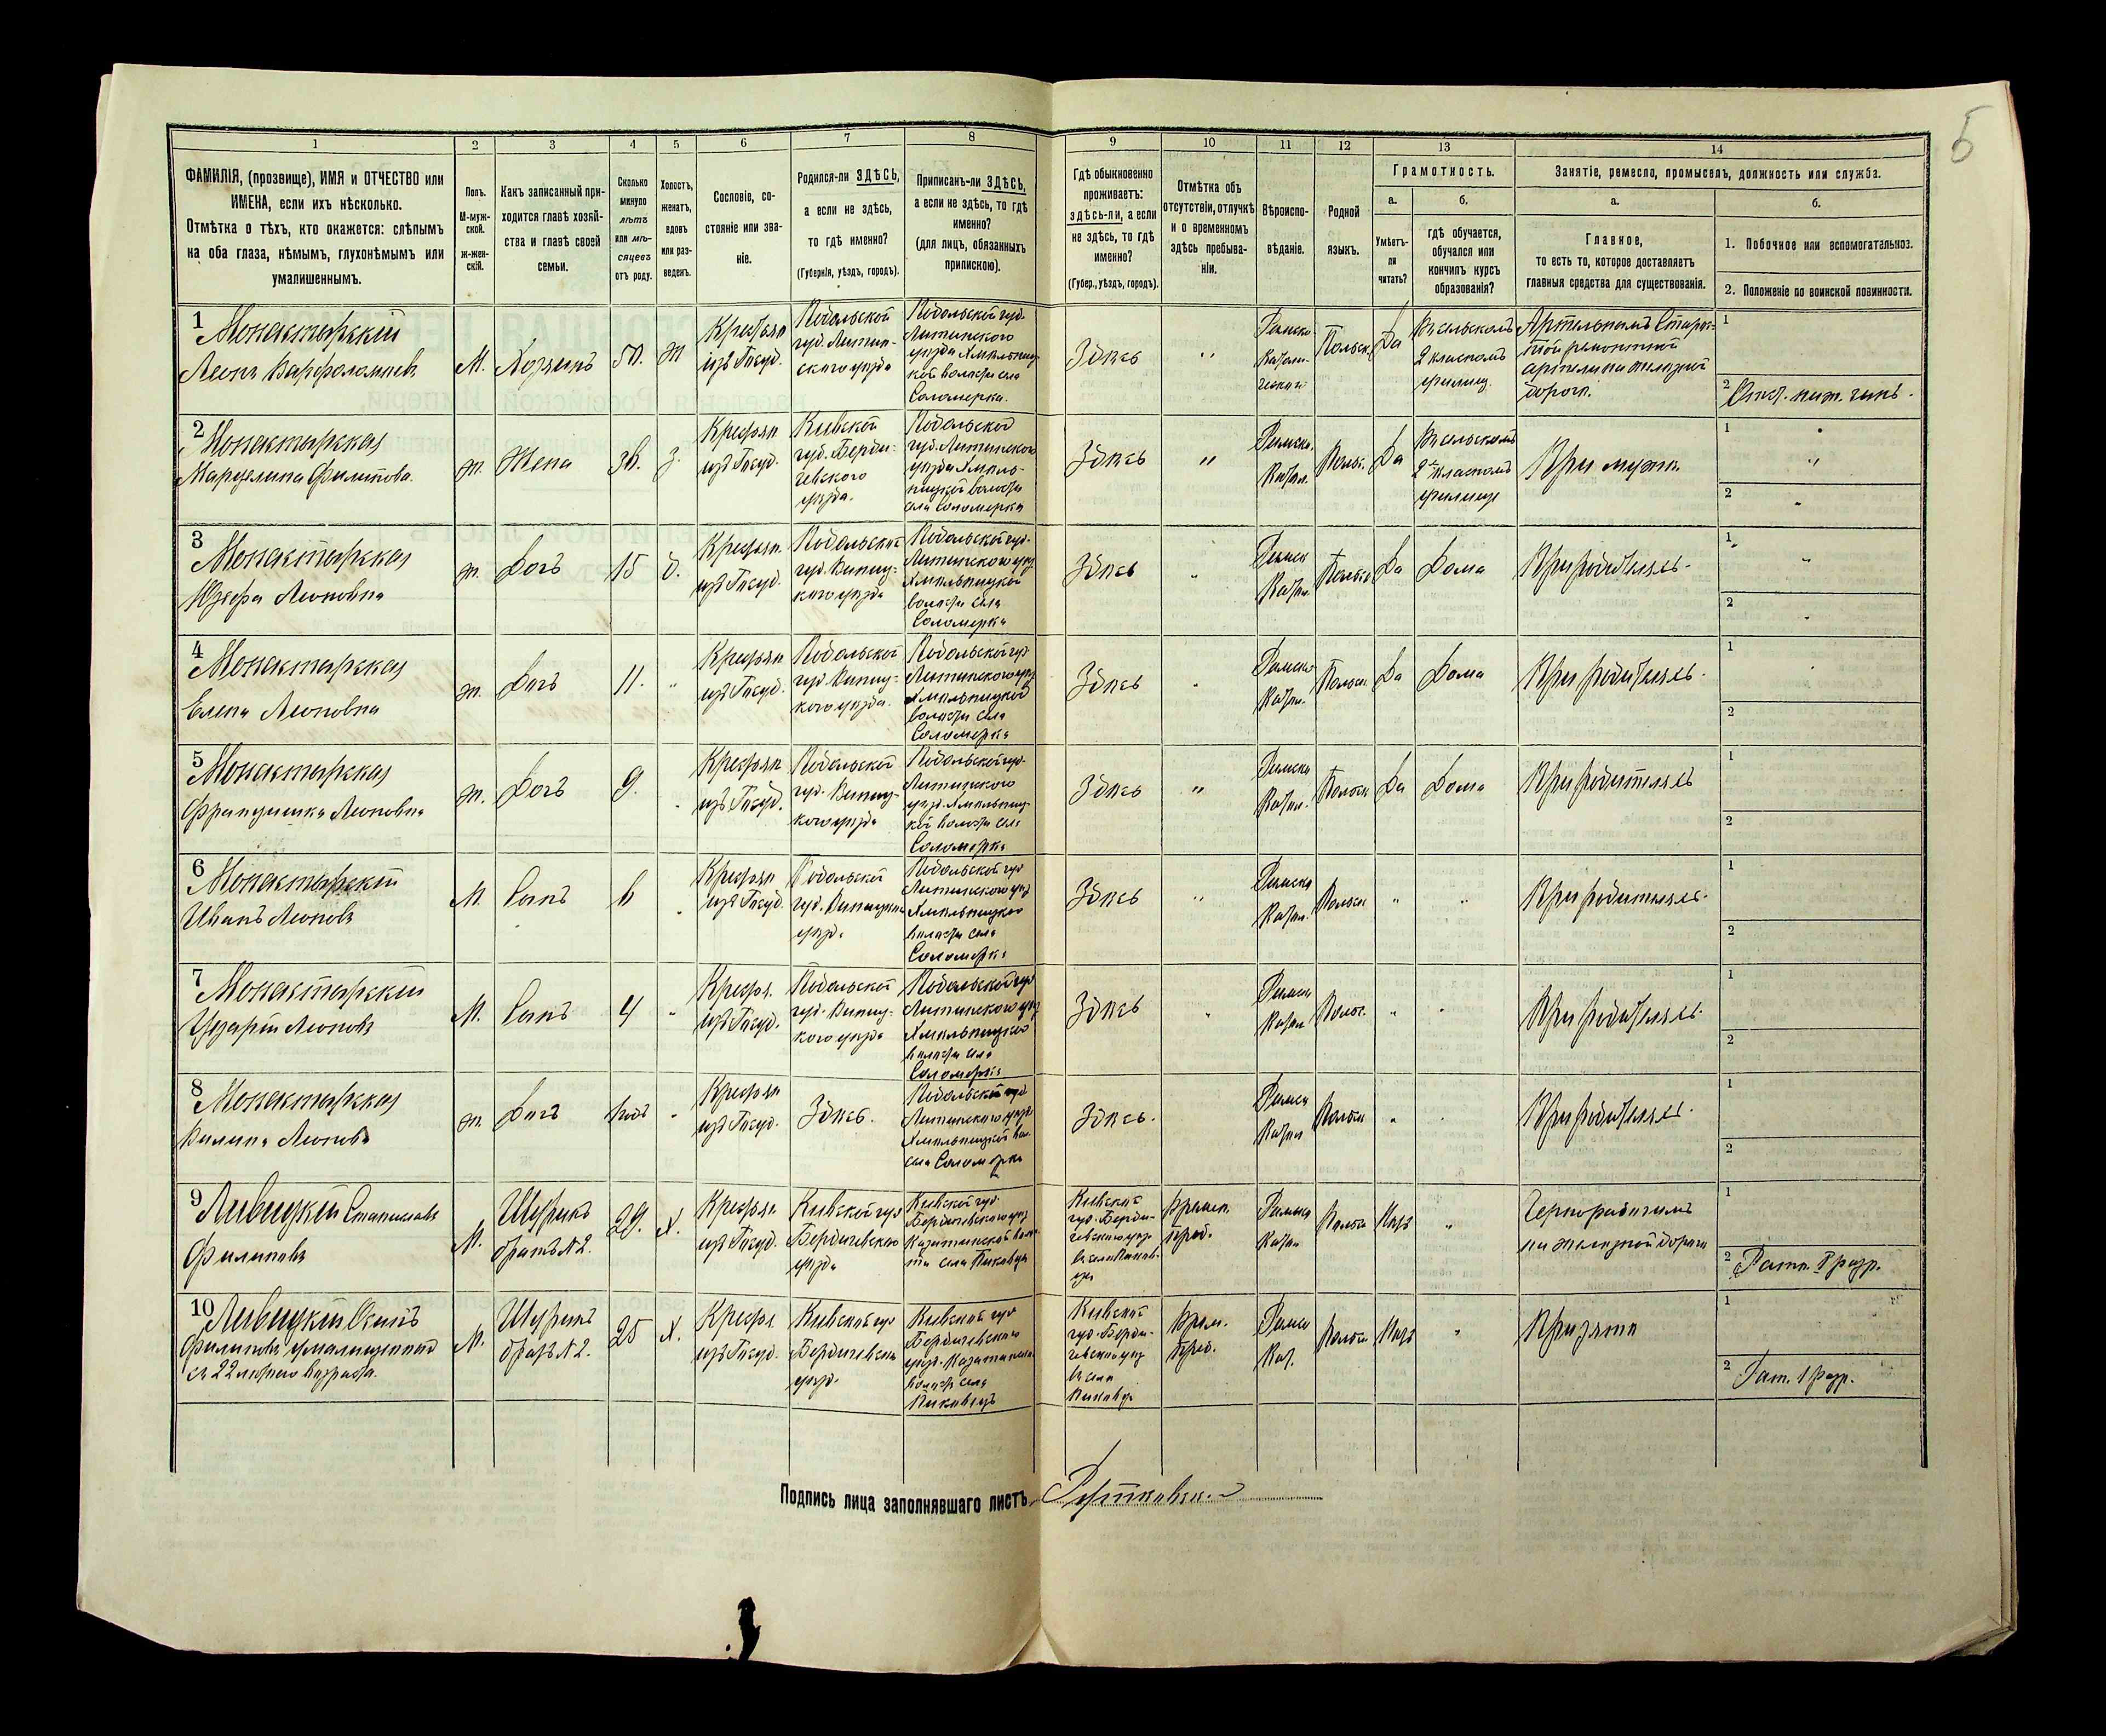 5
1
2
3
4
5
6
7
8
9
10
11
12
13
14
ФАМИЛІЯ, (прозвище), ИМЯ и ОТЧЕСТВО или
ИМЕНА, если ихъ нѣсколько.
Отмѣтка о тѣхъ, кто окажется: слѣпымъ
на оба глаза, нѣмымъ, глухонѣмымъ или
умалишеннымъ.
Полъ.
М-муж-
ской.
Ж-жен-
скій.
Какъ записанный при-
ходится главѣ хозяй-
ства и главѣ своей
семьи.
Сколько
минуло
лѣтъ
или мѣ-
сяцевъ
отъ роду.
Холостъ,
женатъ,
вдовъ
или раз-
веденъ.
Сословіе, со-
стояніе или зва-
ніе.
Родился-ли ЗДѢСЬ,
а если не здѣсь,
то гдѣ именно?
(Губернія, уѣздъ, городъ).
Приписанъ-ли ЗДѢСЬ,
а если не здѣсь, то гдѣ
именно?
(для лицъ, обязанныхъ
припискою).
Гдѣ обыкновенно
проживаетъ:
здѣсь-ли, а если
не здѣсь, то гдѣ
именно?
(Губер., уѣздъ, городъ).
Отмѣтка объ
отсутствіи, отлучкѣ
и о временномъ
здѣсь пребыва-
ніи.
Вѣроиспо-
вѣданіе.
Родной
языкъ.
Грамотность.
а.
Умѣетъ-
ли
читать?
б.
гдѣ обучается,
обучался или
кончилъ курсъ
образованія?
Занятіе, ремесло, промыселъ, должность или служба.
а.
Главное,
то есть то, которое доставляетъ
главныя средства для существованія.
б.
1. Побочное или вспомогательное.
2. Положеніе по воинской повинности.
1 Монастырскій
Леонъ Варфоломѣевъ
М.
Хозяинъ
50.
Ж
Крестьян
изъ Госуд.
Подольской
губ. Литин-
скаго уѣзда
Подольской губ.
Литинскаго
уѣзда Хмѣльниц-
кой волости села
Соломерка.
Здѣсь
"
Римско-
Католи-
ческій
Польск.
Да
Въ сельскомъ
2 класномъ
училищ.
Артельнымъ Старос-
той ремонтной
артели на желѣзной
дорогѣ.
1
2 Отст. ниж. чинъ.
2 Монастырская
Марцелина Филипова.
ж.
Жена
36.
З.
Крестьян
изъ Госуд.
Кіевской
губ. Берди-
чевского
уѣзда.
Подольской
губ. Литинского
уѣзда Хмѣль-
ницкой волости
села Соломерка
Здѣсь
"
Римско.
Катол.
Польс.
Да
Въ сельскомъ
2 класномъ
училищ
При мужѣ
1
2
3 Монастырская
Юзефа Леоновна
ж.
Дочь
15
д.
Крестьян.
изъ Госуд.
Подольской
губ. Винниц-
каго уѣзда
Подольской губ.
Литинского уѣз.
Хмѣльницкой
волости села
Соломерка
Здѣсь
Римск
Катол.
Польск
Да
Дома
При родителяхъ.
1
2
4 Монастырская
Елена Леоновна
ж.
Дочь
11.
Крестьян
изъ Госуд.
Подольской
губ Винниц-
кого уѣзда.
Подольской губ.
Литинского уѣз
Хмѣльницкой
волости села
Соломерка
Здѣсь
Римско
Катол.
Польск
Да
Дома
При родителяхъ.
1
2
5 Монастырская
Францишка Леоновна
ж.
Дочь
9.
Крестьян
изъ Госуд.
Подольской
губ. Винниц-
кого уѣзда
Подольской губ.
Литинского
уѣзд. Хмѣльниц-
кой волости села
Соломерка
Здѣсь
"
Римско
Катол.
Польск
Да
Дома
При родителяхъ
1
2
6 Монастырскій
Иванъ Леоновъ
М.
Сынъ
6
Крестьян
изъ Госуд.
Подольской
губ. Винницк
уѣзда
Подольской губ
Литинского уѣз
Хмѣльницкой
волости села
Соломерка
Здѣсь
"
Римско
Катол.
Польск
"
"
При родителяхъ.
1
2
7 Монастырскій
Цезарій Леоновъ
М.
Сынъ
4
Крестья.
изъ Госуд.
Подольской
губ. Винниц-
кого уѣзда
Подольской губ
Литинского уѣз
Хмѣльницкой
волости села
Соломерка
Здѣсь
Римск
Катол
Польс.
При родителяхъ.
1
2
8 Монастырская
Леонова
ж.
Дочь
Крестьян
изъ Госуд.
Здѣсь.
Подольской губ
Литинского уѣзд
Хмѣльницкой вол.
села Соломерка
Здѣсь.
Римск
Катол
Польск
При родителяхъ.
1
2
9 Левицкій Станиславъ
Филиповъ
М.
Шуринъ
братъ N 2.
29.
Х.
Крестьян.
изъ Госуд.
Кіевской губ
Бердичевского
уѣзда
Кіевской губ.
Бердичевского уѣзд
Казатинской воло-
сти села
Кіевской
губ. Берди-
чевского уѣз
Времен.
преб.
Римск
Катол
Польск
Нѣтъ
"
Чернорабочимъ
на желѣзной дорогѣ
1
2 Ратн. 1 разр.
10 Левицкій Осипъ
Филиповъ умалишенный
съ 22 лѣтнего возраста.
М.
Шуринъ
братъ N 2.
25
Х.
Крестья
изъ Госуд.
Кіевской губ
Бердичевского
уѣзд.
Кіевской губ
Бердичевского
уѣзд. Казатинск.
волости села
Кіевской
губ. Берди-
чевского уѣз
села
Врем.
преб.
Римск
Кат.
Польск
Нѣтъ
"
При зятѣ
1
2 Рат. 1 разр.
Подпись лица заполнявшаго листъ